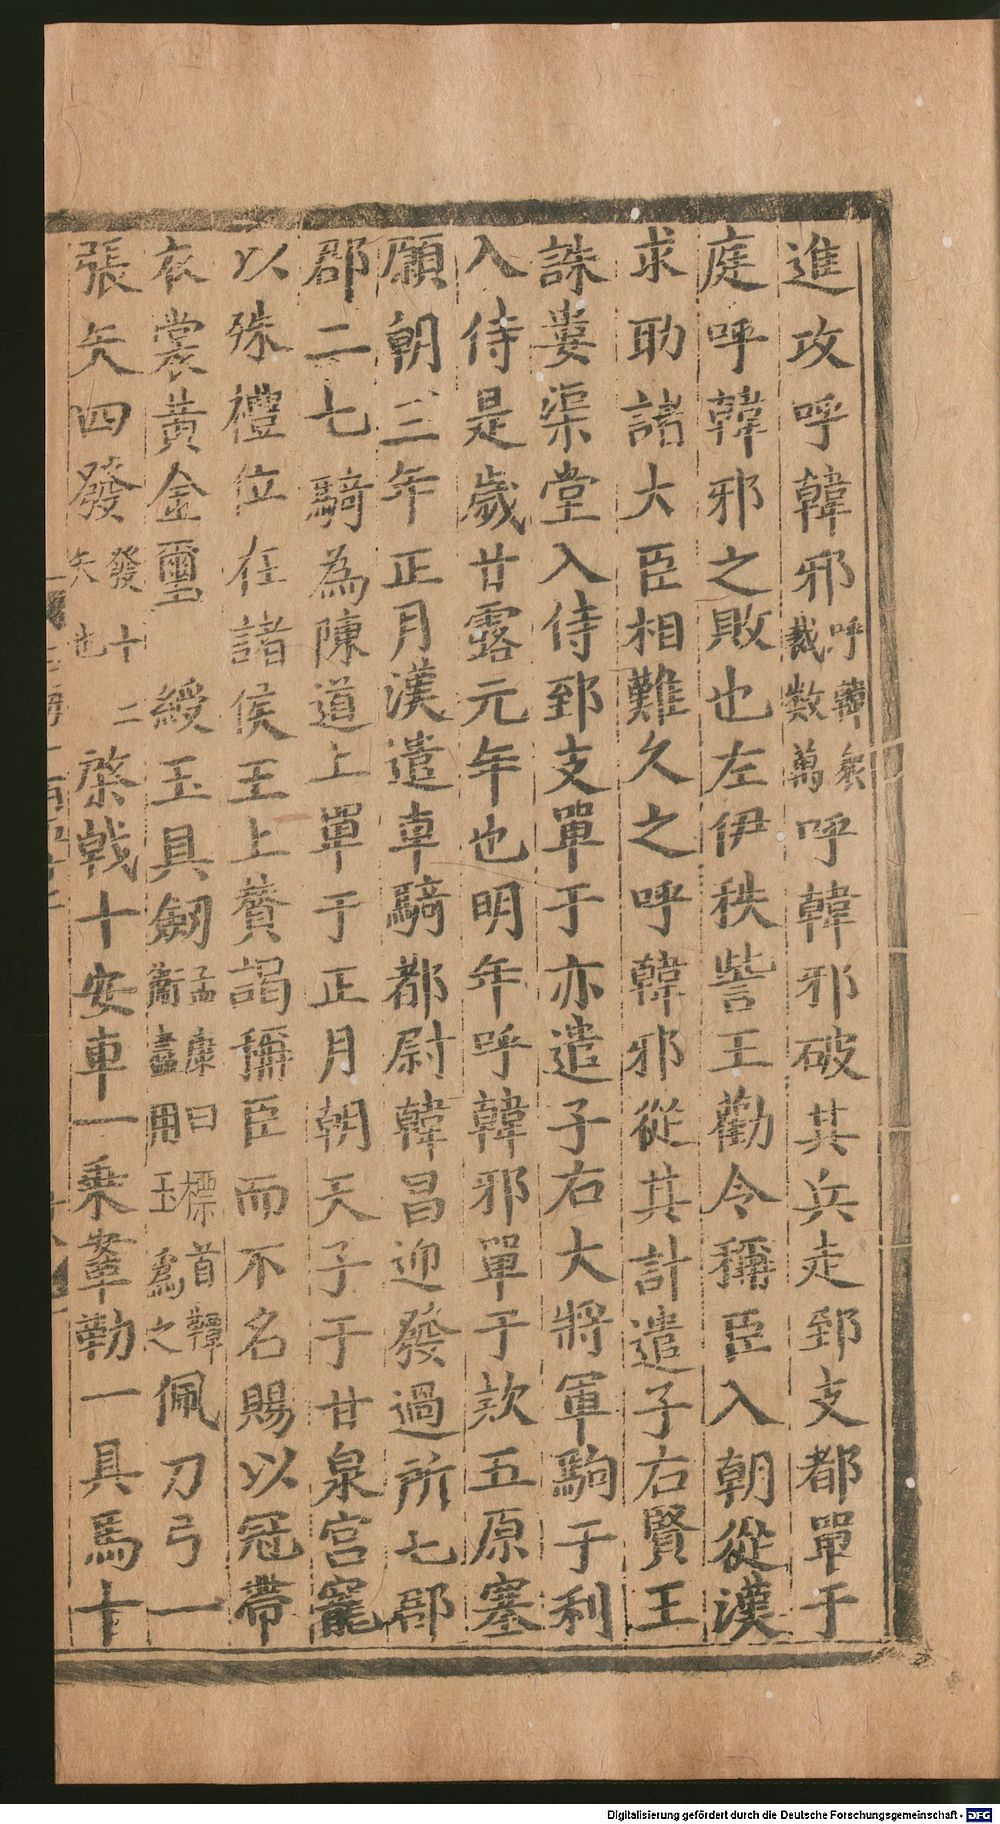 進攻呼韓邪呼韓衆裁數萬呼韓邪破其兵走郅支都單于
庭呼韓邪之敗也左伊秩訾王勸令稱臣入朝從漢
求助諸大臣相難久之呼韓邪從其計遣子右賢王
誅婁渠堂入侍郅支單于亦遣子右大將軍駒于利
入侍是歲甘露元年也明年呼韓邪單于欵五原塞
願朝三年正月漢遣車騎都尉韓昌迎發過所七郡
郡二七騎為陳道上單于正月朝天子于甘泉宮寵
以殊禮位在諸侯王上賛謁稱臣而不名賜以冠帶
衣裳黃金璽綬玉具劒孟康曰標首鐔衞盡用玉為之佩刀弓一
張矢四發發十二矢也棨戟十安車一乗鞌勒一具馬十
Digitalisierung gefördert durch die Deutsche Forschungsgemeinschaft - DFG